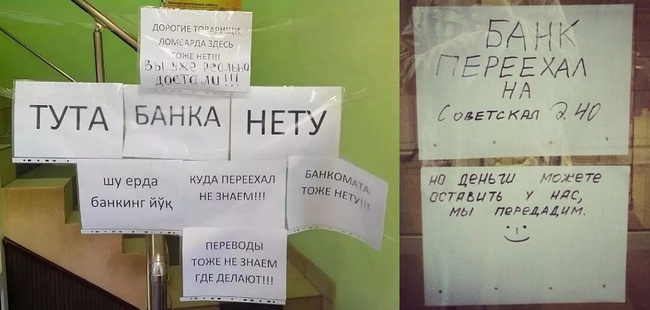 ДОРОГИЕ ТОВАРИЩИ
ЛОМБАРДА ЗДЕСЬ
ТОЖЕ НЕТ!!!
ВЫ УЖЕ РЕАЛЬНО
ДОСТАЛИ!!!
ТУТА БАНКА НЕТУ
шу ерда
банкинг йўқ
КУДА ПЕРЕЕХАЛ
НЕ ЗНАЕМ!!!
БАНКОМАТА
ТОЖЕ НЕТУ!!!
ПЕРЕВОДЫ
ТОЖЕ НЕ ЗНАЕМ
ГДЕ ДЕЛАЮТ!!!
БАНК
ПЕРЕЕХАЛ
НА
СОВЕТСКАЯ Д.40
НО ДЕНЬГИ МОЖЕТЕ
ОСТАВИТЬ У НАС,
МЫ ПЕРЕДАДИМ.